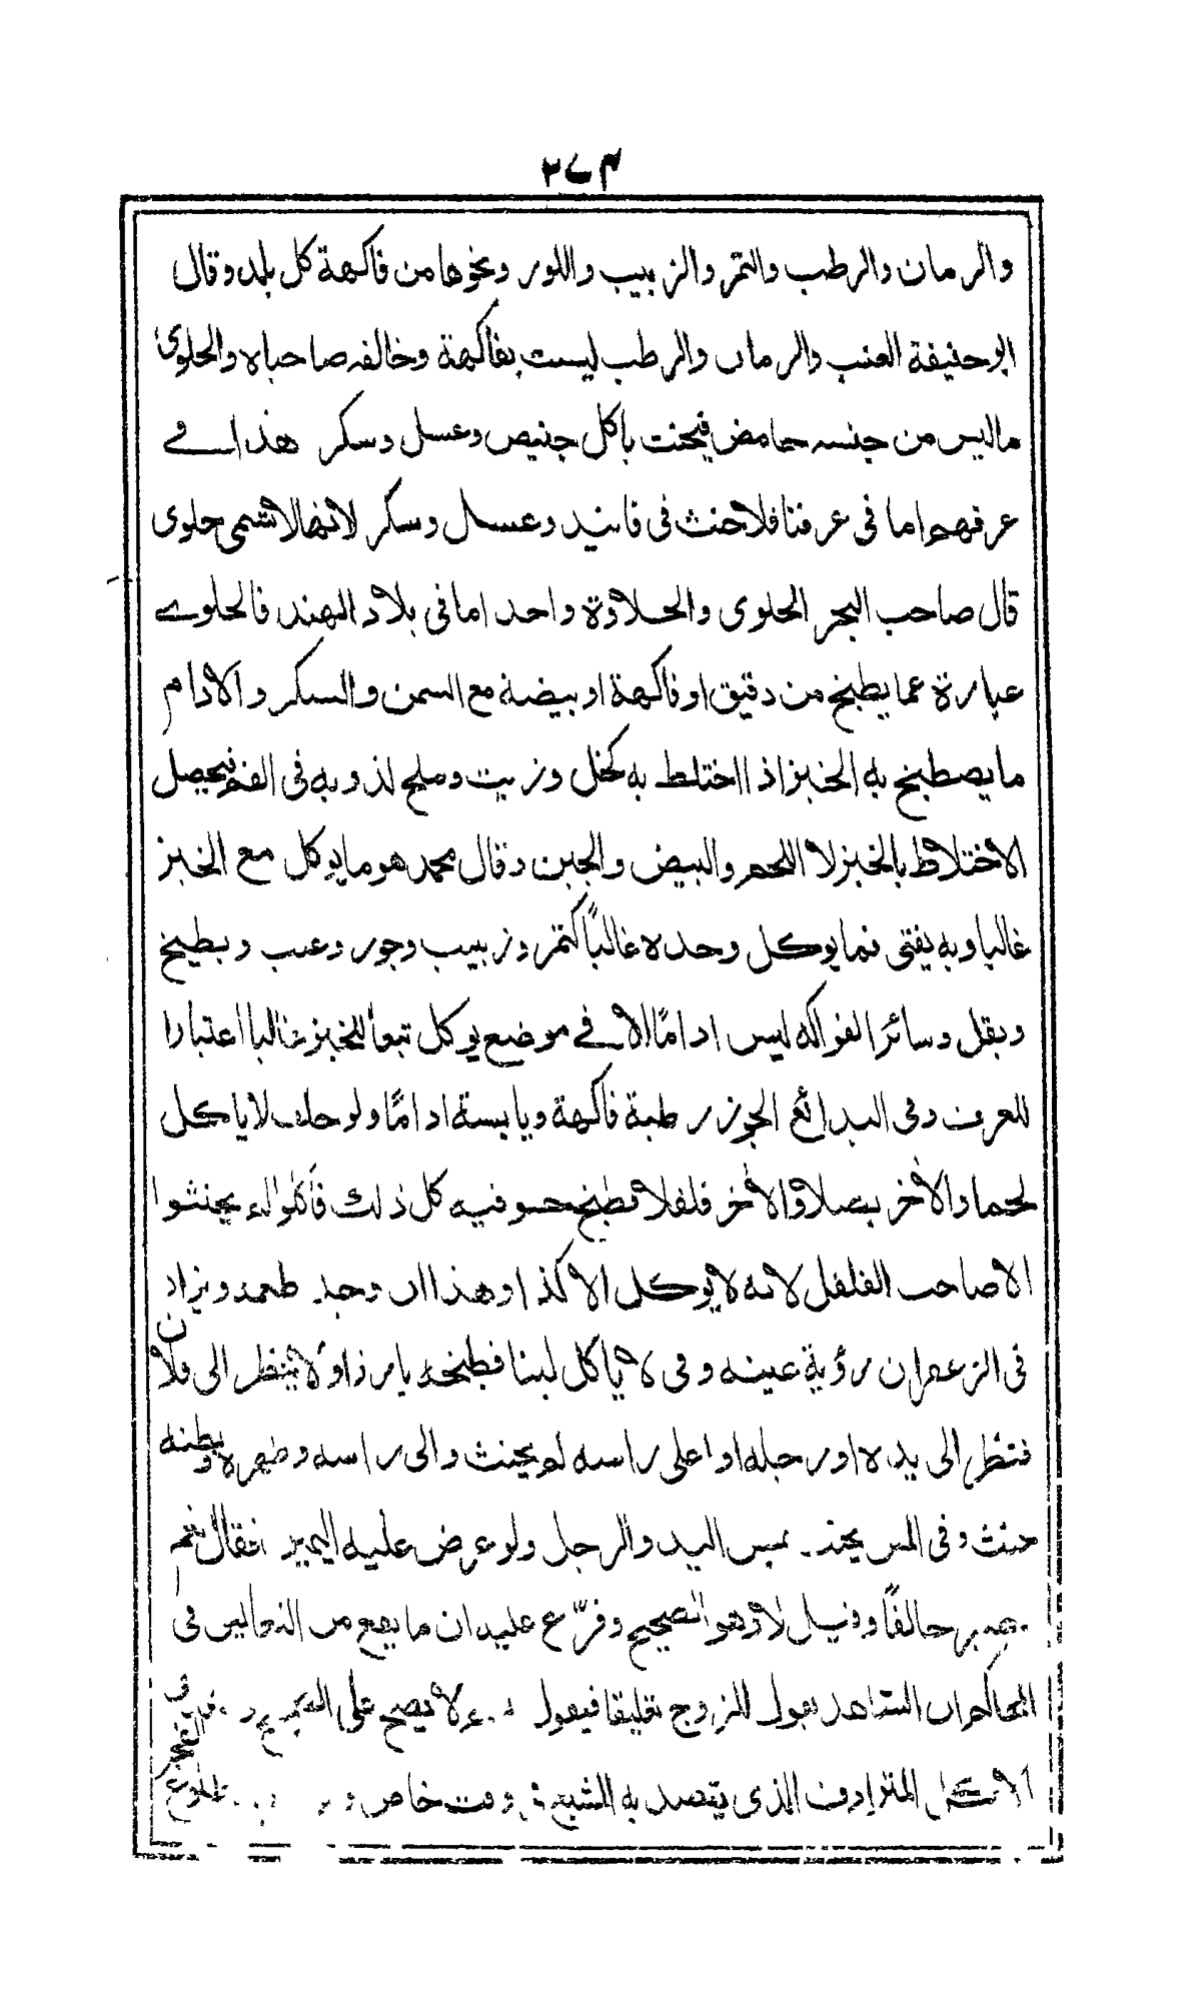 ٢٧٣
والرمان والرطب والتمر والزبيب واللوز ونحوها من فاكهة كل بلد وقال
ابو حنيفة العنب والرمان والرطب ليست بفاكهة وخالفه صاحباه والحلوى
ماليس من جنسه حامض فيحنث باكل خبيص وعسل وسكر هذا فى
عرفهم اما فى عرفنا فلا حنث فى فانيد وعسل وسكر لانها لا تسمى حلوى
قال صاحب البحر الحلوى والحلاوة واحد اما فى بلاد الهند فالحلوے
عبارة عما يطبخ من دقيق او فاكهة او بيضة مع السمن والسكر والادام
ما يصطبغ به الخبز اذا اختلط به كخل وزيت وملح لذوبه فى الفم فيحصل
الاختلاط بالخبز لا اللحم والبيض والجبن وقال محمد هو ما يوكل مع الخبز
غالبا وبه يفتى فما يوكل وحده غالبًا كتمر وزبيب وجوز وعنب وبطيخ
وبقل وسائر الفواكه ليس ادامًا الا فے موضع يوكل تبعا للخبز غالبا اعتبارا
للعرف وفى البدائع الجوز رطبة فاكهة ويابسة ادامًا ولو حلف لا ياكل
لحما والأخر بصلا والأخر فلفلا فطبخ حسو فيه كل ذلك فأكلوا لم يحنثوا
الا صاحب الفلفل لانه لا يوكل الا كذا وهذا ان وجد طعمه ويزاد
فى الزعفران رؤية عينه وفى لا ياكل لبنا فطبخه بارز او لا ينظر الى فلان
فنظر الى يده او رجله او اعلى راسه لم يحنث والى راسه وظهره وبطنه
حنث وفى المس يحنث بمس اليد والرجل ولو عرض عليه اليمين فقال نعم
حالفًا وقيل لا وهو الصحيح وفرّع عليه ان ما يقع من التعاليق فى
المحاكم ان الشاهد يقول للزوج تعليقا فيقول نعم لا يصح على الصحيح
الاكل المترادف الذى يقصد به الشبع وقت خاص طلوع الفجر